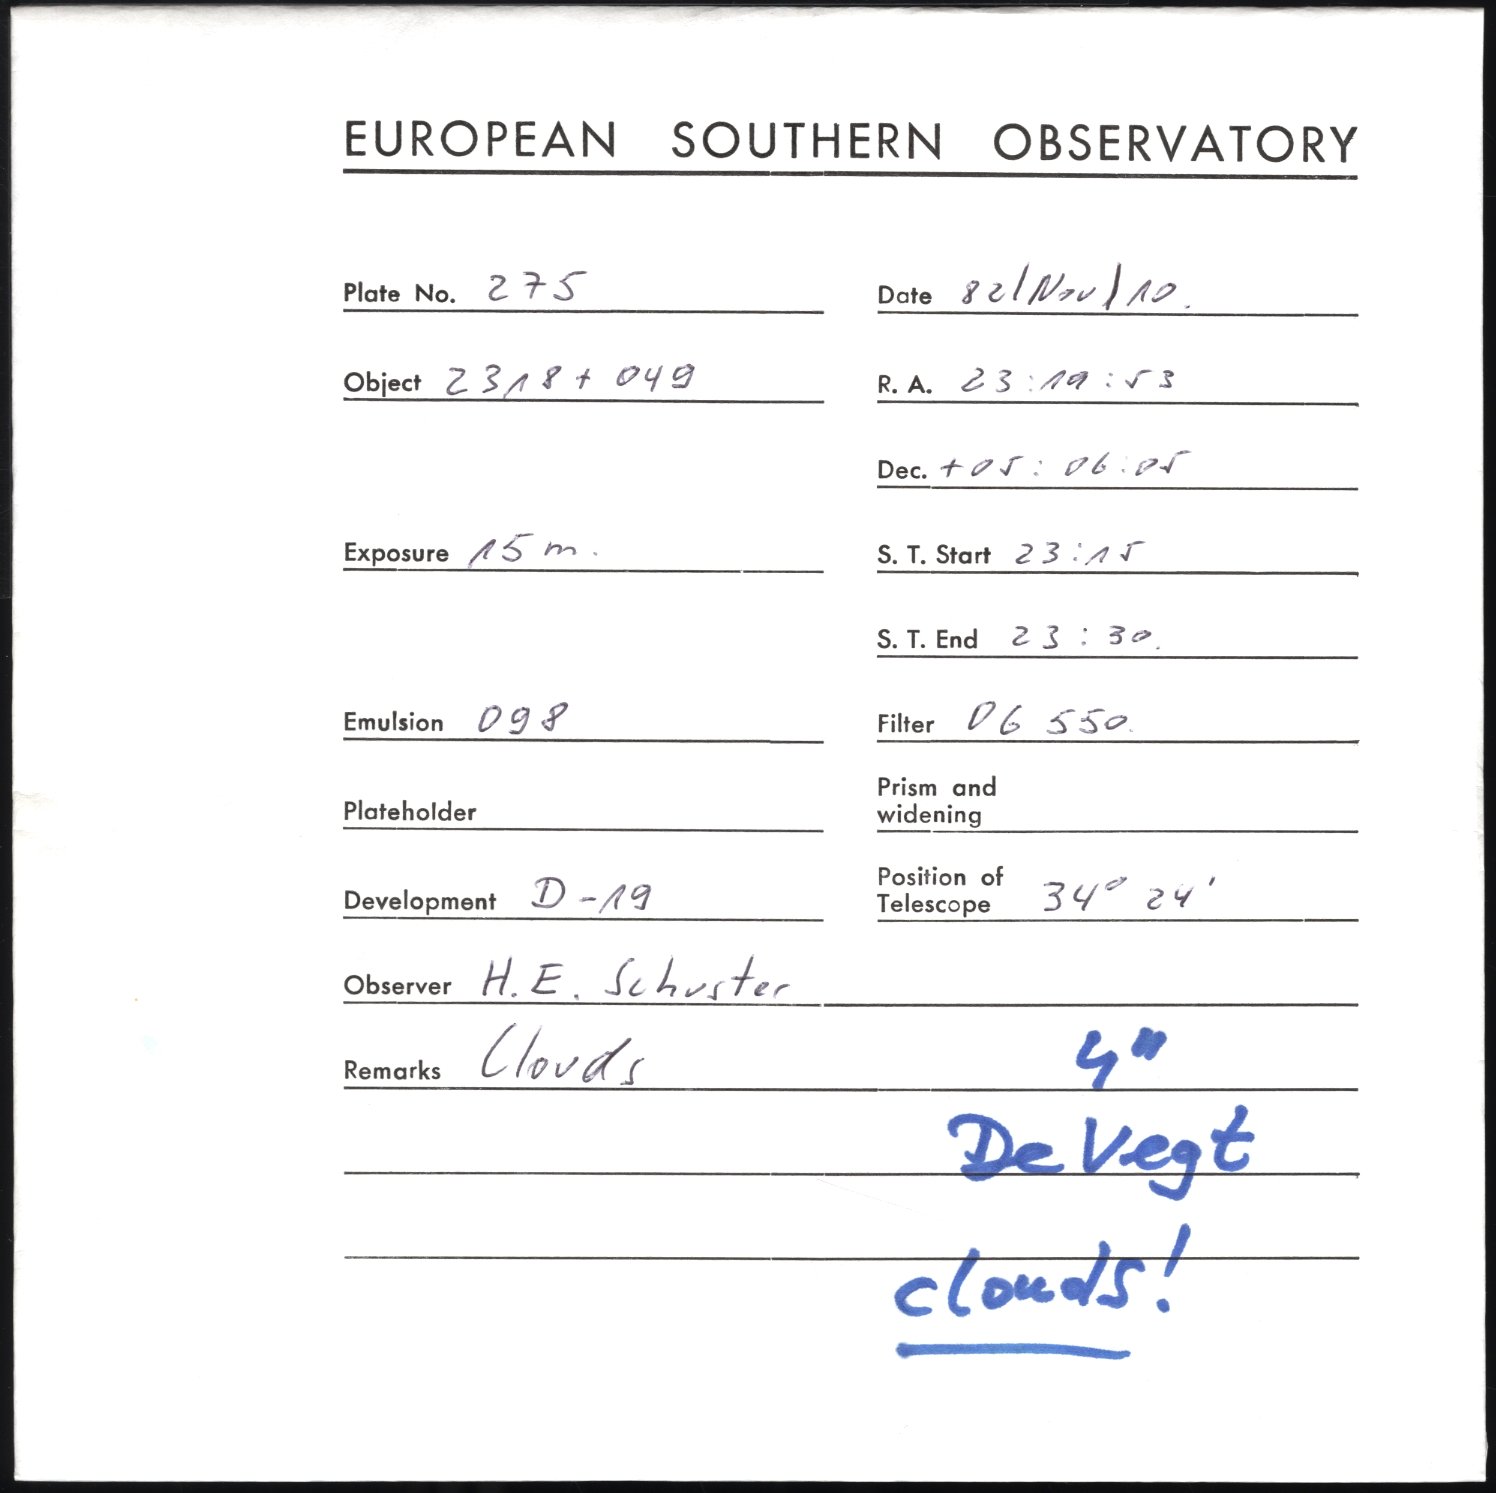 EUROPEAN SOUTHERN OBSERVATORY
Plate No. 275
Date 82/Nov/10.
Object 2318+049
R. A. 23:19:53
Dec. +05:06:05
Exposure 15m.
S. T. Start 23:15
S. T. End 23:30.
Emulsion 098
Filter OG 550.
Plateholder
Prism and
widening
Development D-19
Position of
Telescope 34° 24'
Observer H. E. Schuster
Remarks Clouds
4"
De Vegt
clouds!